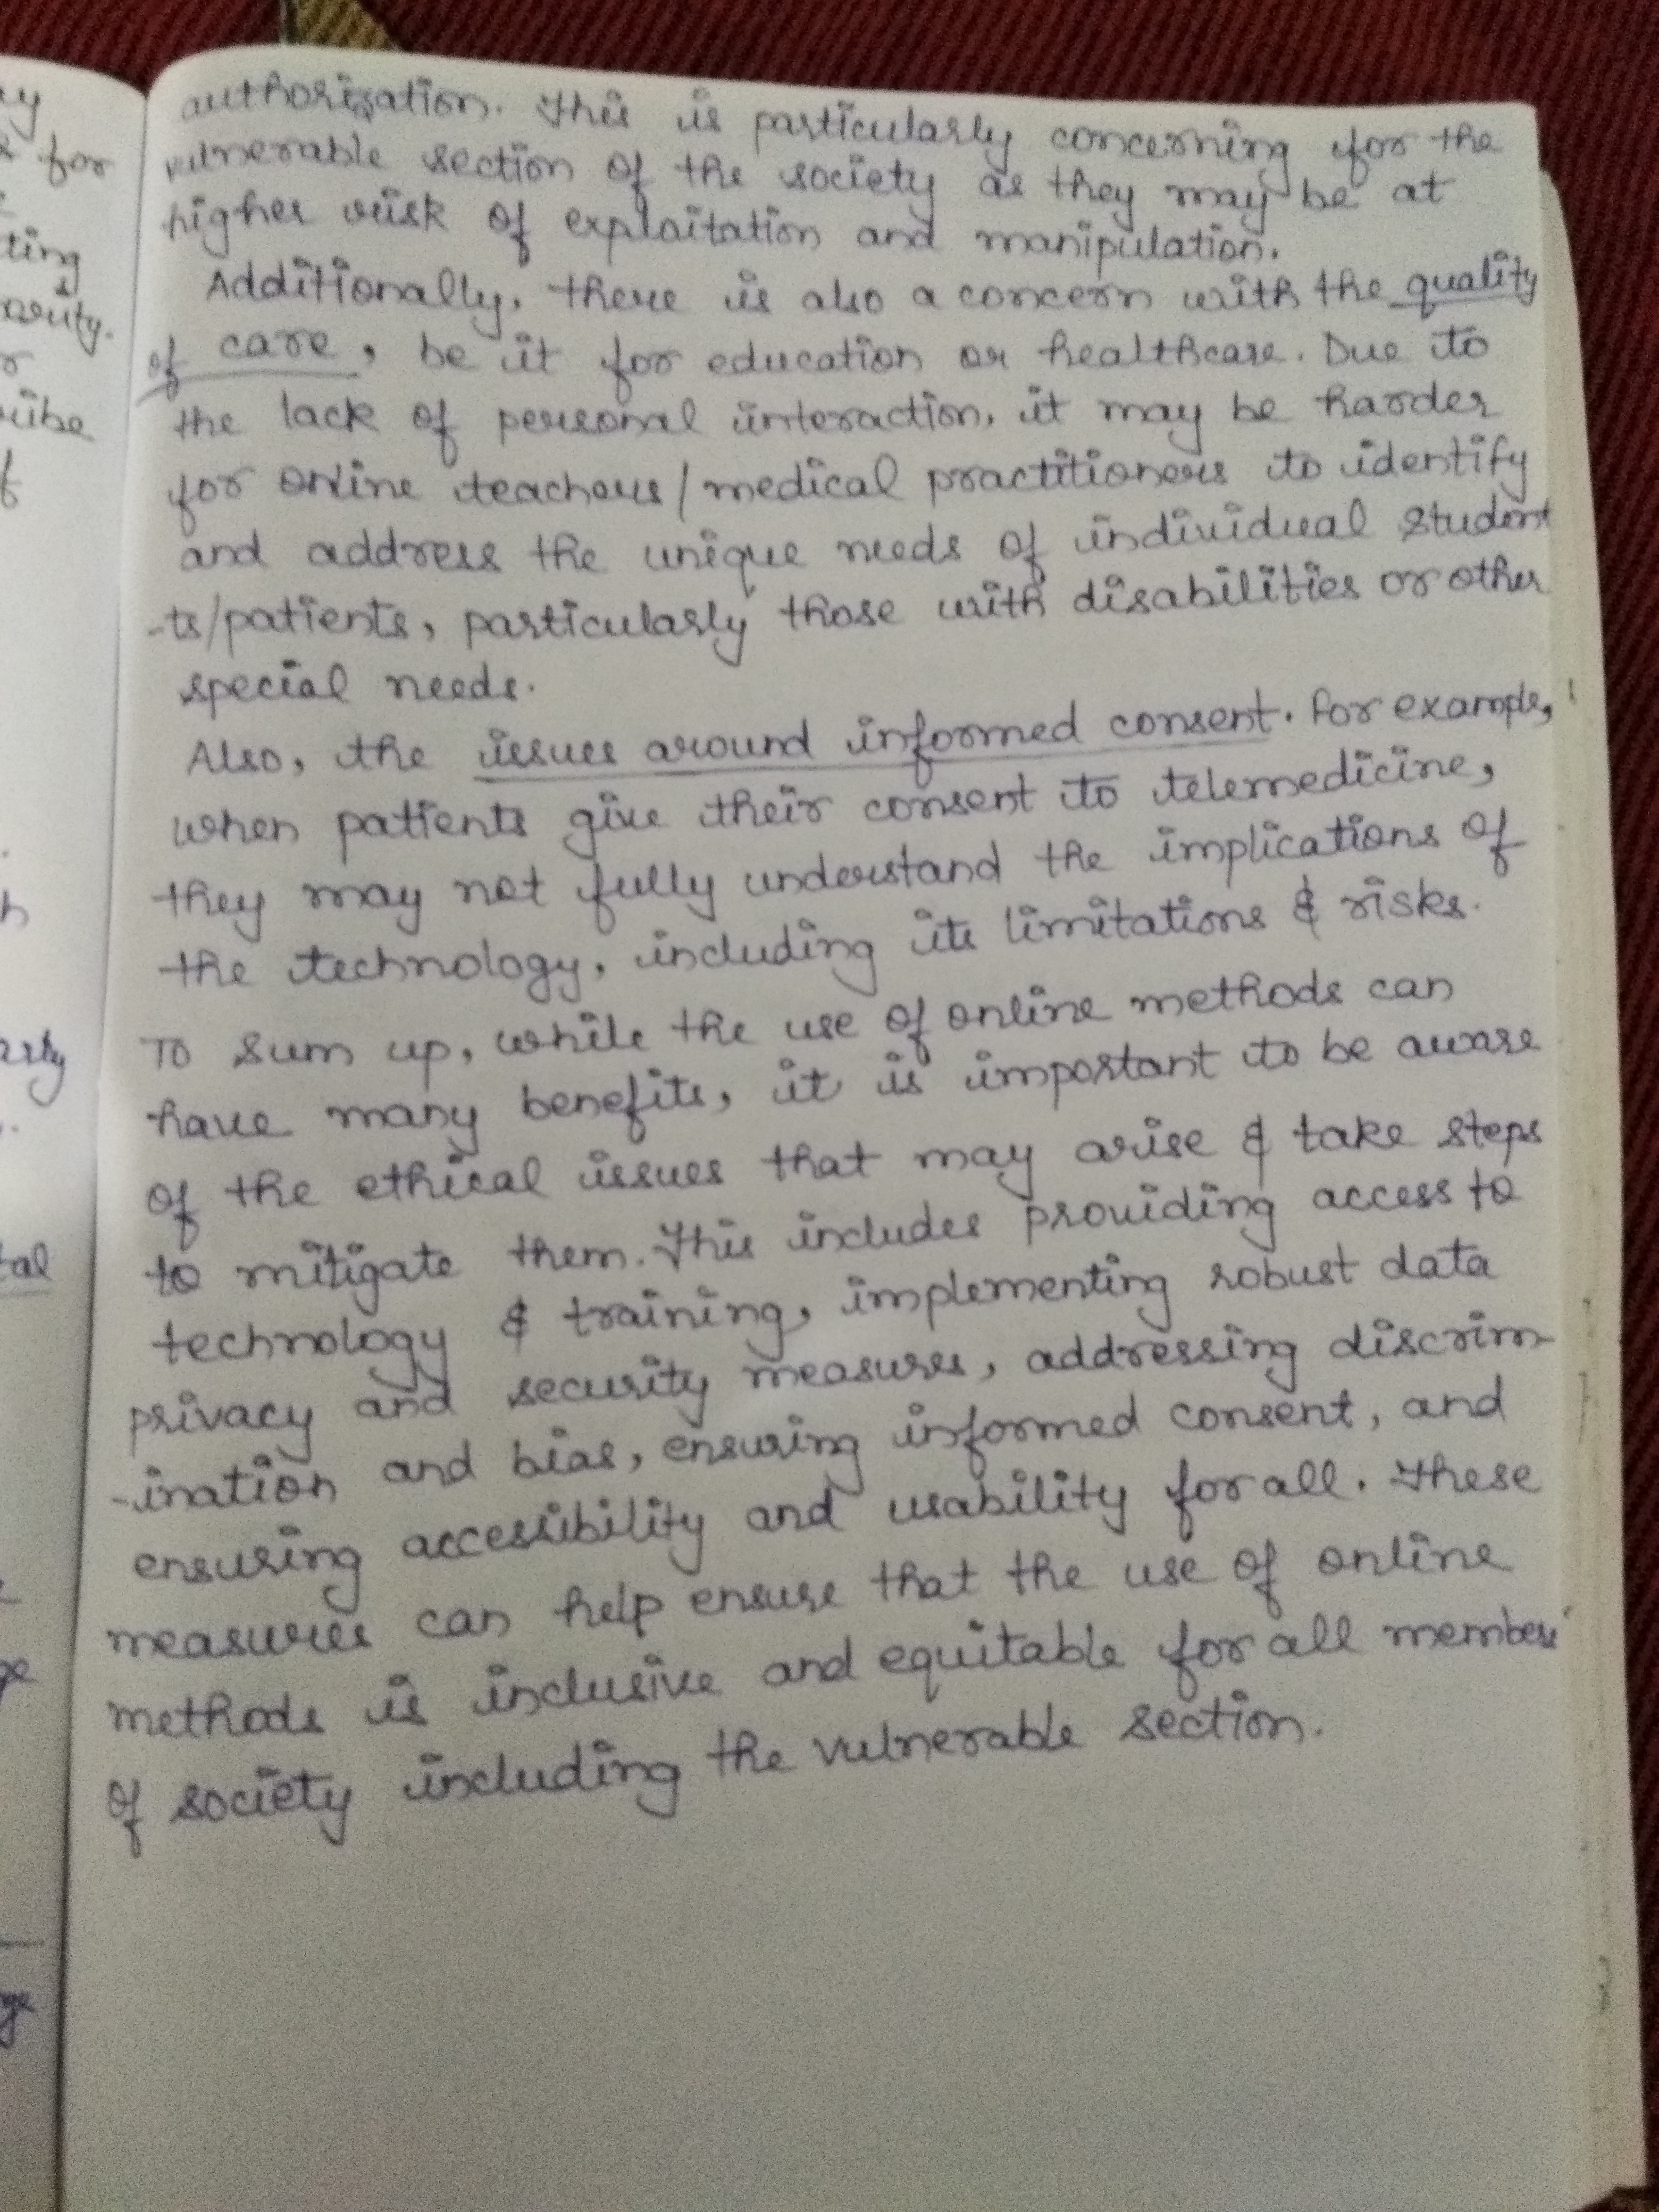 authorization. This is particularly concerning for the
vulnerable section of the society as they may be at
higher risk of exploitation and manipulation.
Additionally, there is also a concern with the quality
of care, be it for education or healthcare. Due to
the lack of personal interaction, it may be harder
for online teachers/medical practitioners to identify
and address the unique needs of individual student
-ts/patients, particularly those with disabilities or other
special needs.
Also, the issues around informed consent. For example,
when patients give their consent to telemedicine,
they may not fully understand the implications of
the technology, including its limitations & risks.
To sum up, while the use of online methods can
have many benefits, it is important to be aware
of the ethical issues that may arise & take steps
to mitigate them. This includes providing access to
technology & training, implementing robust data
privacy and security measures, addressing discrim-
-ination and bias, ensuring informed consent, and
ensuring accessibility and usability for all. These
measures can help ensure that the use of online
methods is inclusive and equitable for all members
of society including the vulnerable section.